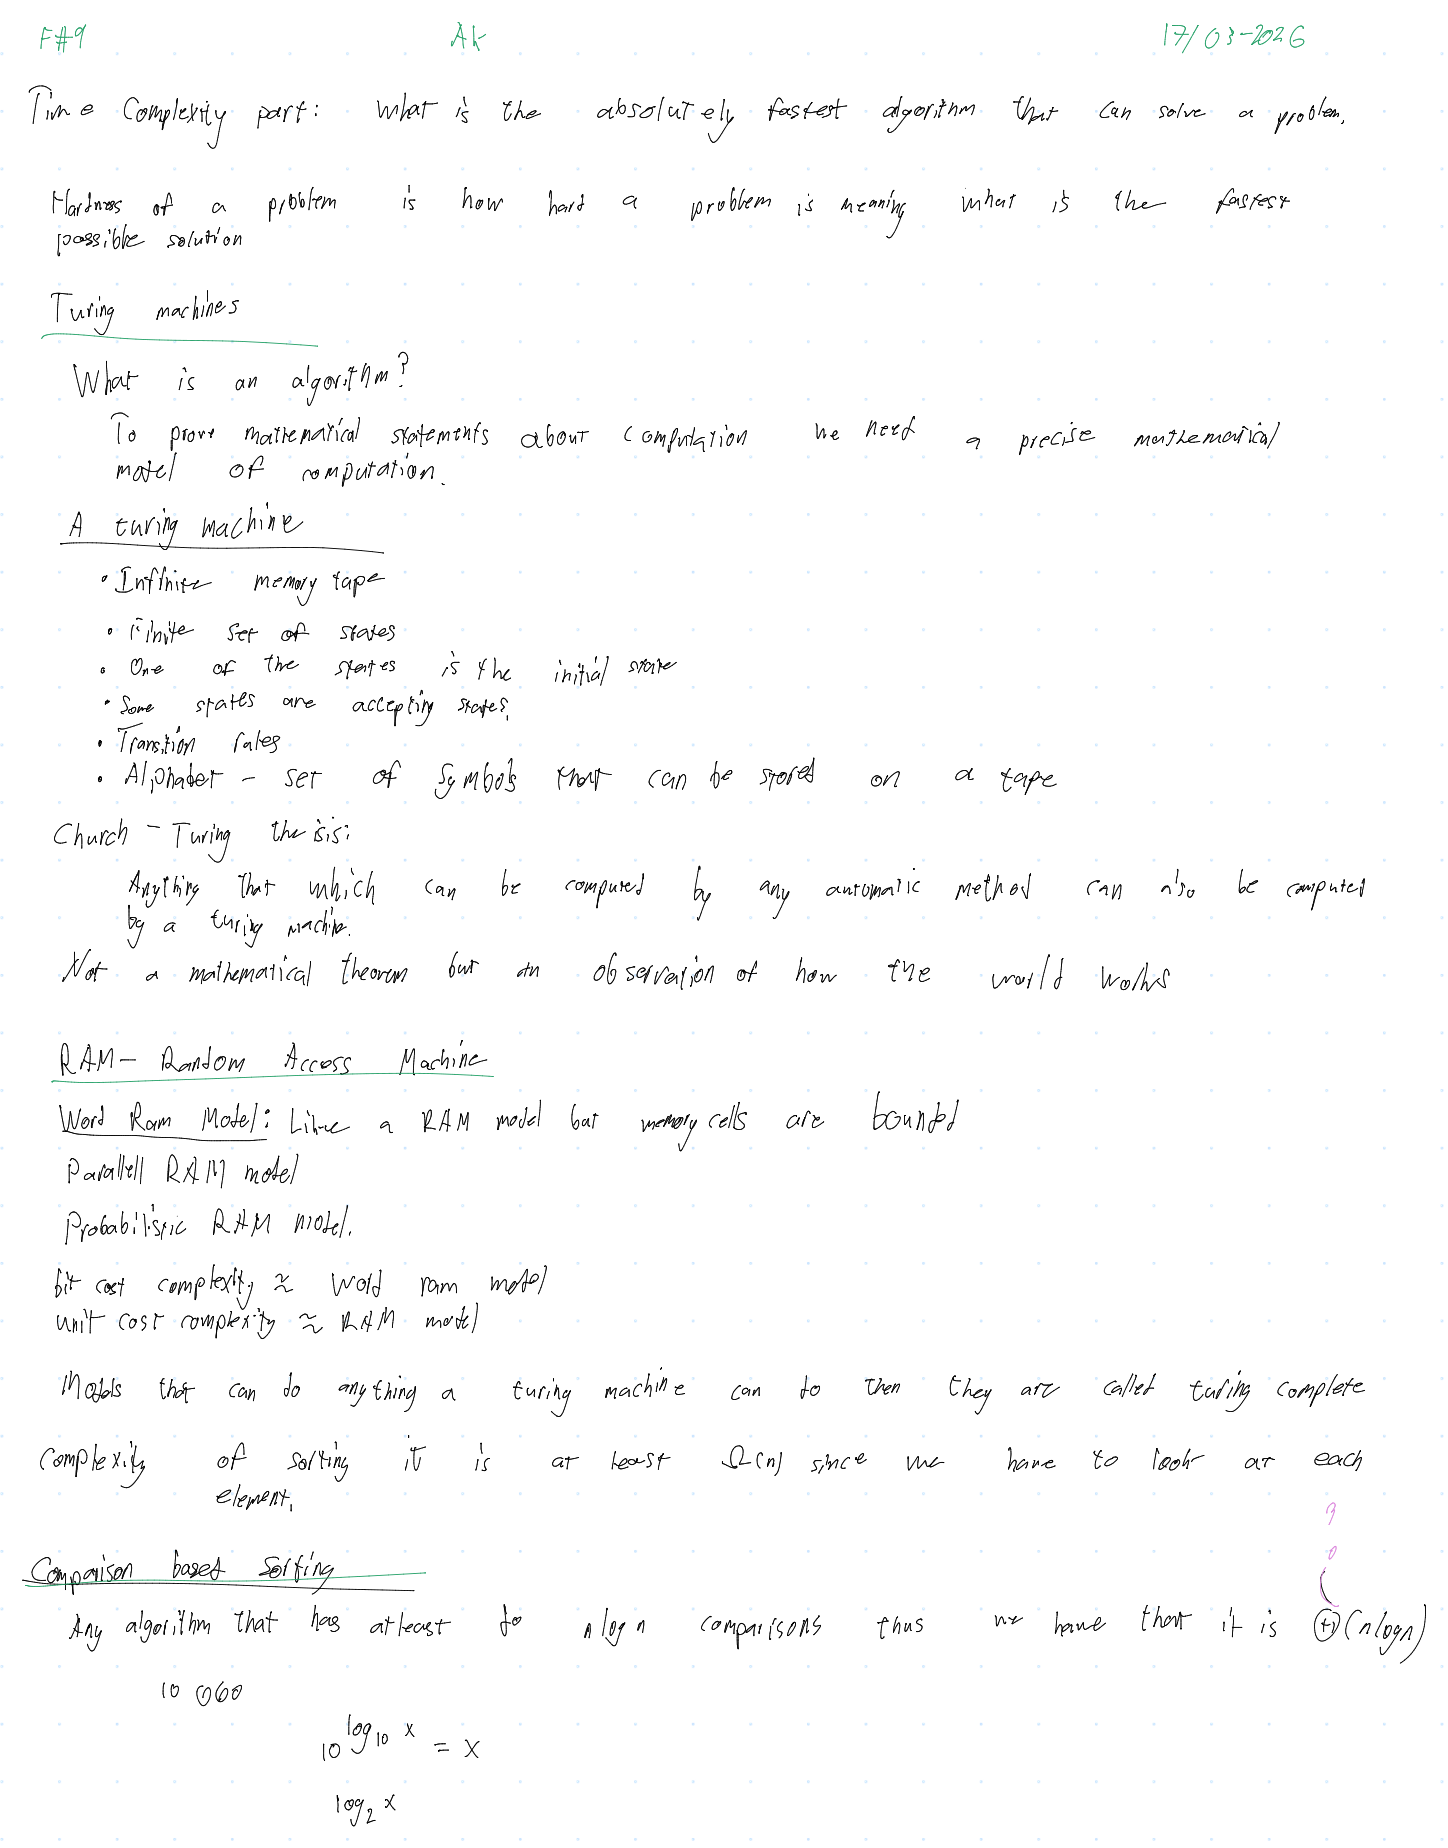 F#9 AK 17/03-2026
Time Complexity part: What is the absolutely fastest algorithm that can solve a problem.
Hardness of a problem is how hard a problem is meaning what is the fastest
possible solution
Turing machines
What is an algorithm?
To prove mathematical statements about computation we need a precise mathematical
model of computation.
A turing machine
• Infinite memory tape
• Finite set of states
• One of the states is the initial state
• Some states are accepting states.
• Transition rules
• Alphabet - set of symbols that can be stored on a tape
Church - Turing thesis:
Anything that which can be computed by any automatic method can also be computed
by a turing machine.
Not a mathematical theorem but an observation of how the world works
RAM - Random Access Machine
Word Ram Model: Like a RAM model but memory cells are bounded
Parallell RAM model
Probabilistic RAM model.
bit cost complexity ≈ Word ram model
unit cost complexity ≈ RAM model
Models that can do anything a turing machine can do then they are called turing complete
complexity of sorting it is at least Ω(n) since we have to look at each
element.
?
Comparison based sorting
Any algorithm that has atleast to do n log n comparisons thus we have that it is Θ(nlogn)
10 000
10^{log_{10} x} = x
log_2 x